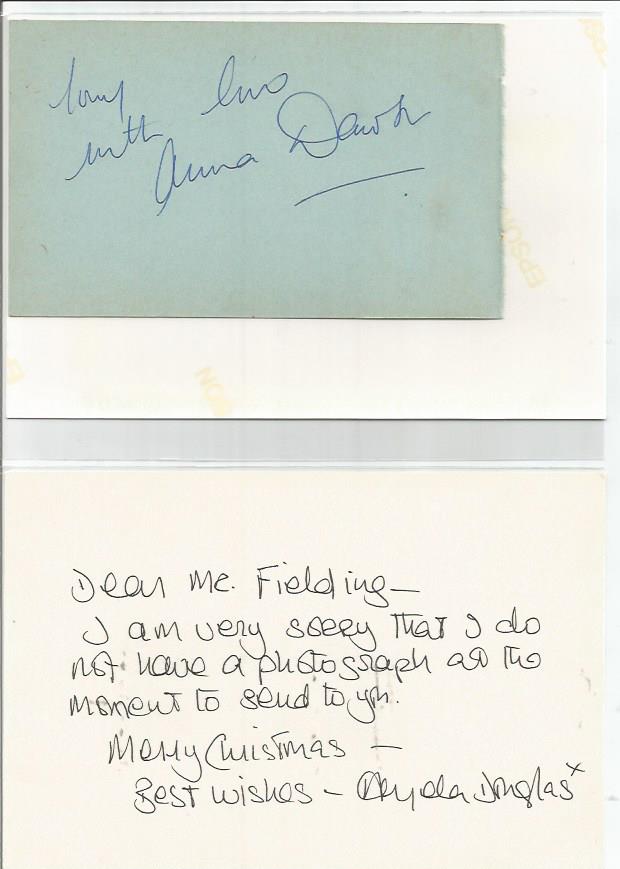 love
with
Anna Dawson
EPSON
ON
Dear Mr. Fielding—
I am very sorry that I do
not have a photograph at the
moment to send to you.
Merry Christmas —
Best wishes – Angela Douglas x